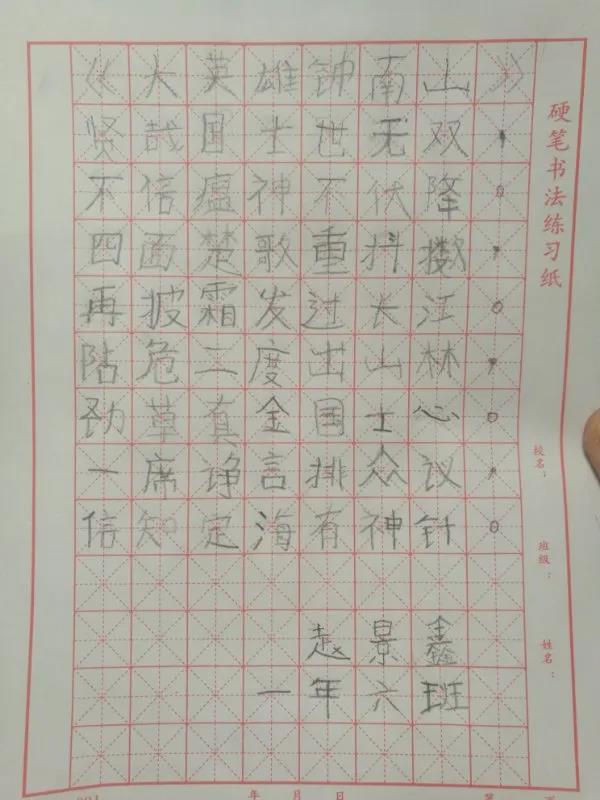 《大英雄钟南山》
贤哉国士世无双，
不信瘟神不伏降。
四面楚歌重抖擞，
再披霜发过长江。
阽危二度出山林，
劲草真金国士心。
一席诤言排众议，
信知定海有神针。
赵景鑫
一年六班
硬笔书法练习纸
校名：
班级：
姓名：
年 月 日